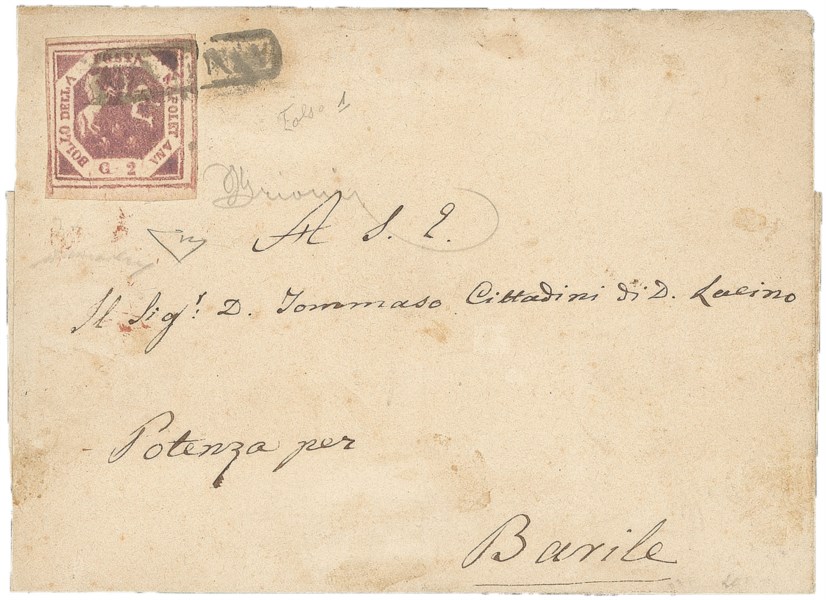 POSTA
BOLLO DELLA
NAPOLETANA
G. 2
Falso 1
A S. E.
Il Sigr. D. Tommaso Cittadini di D. Lucino
Potenza per
Barile